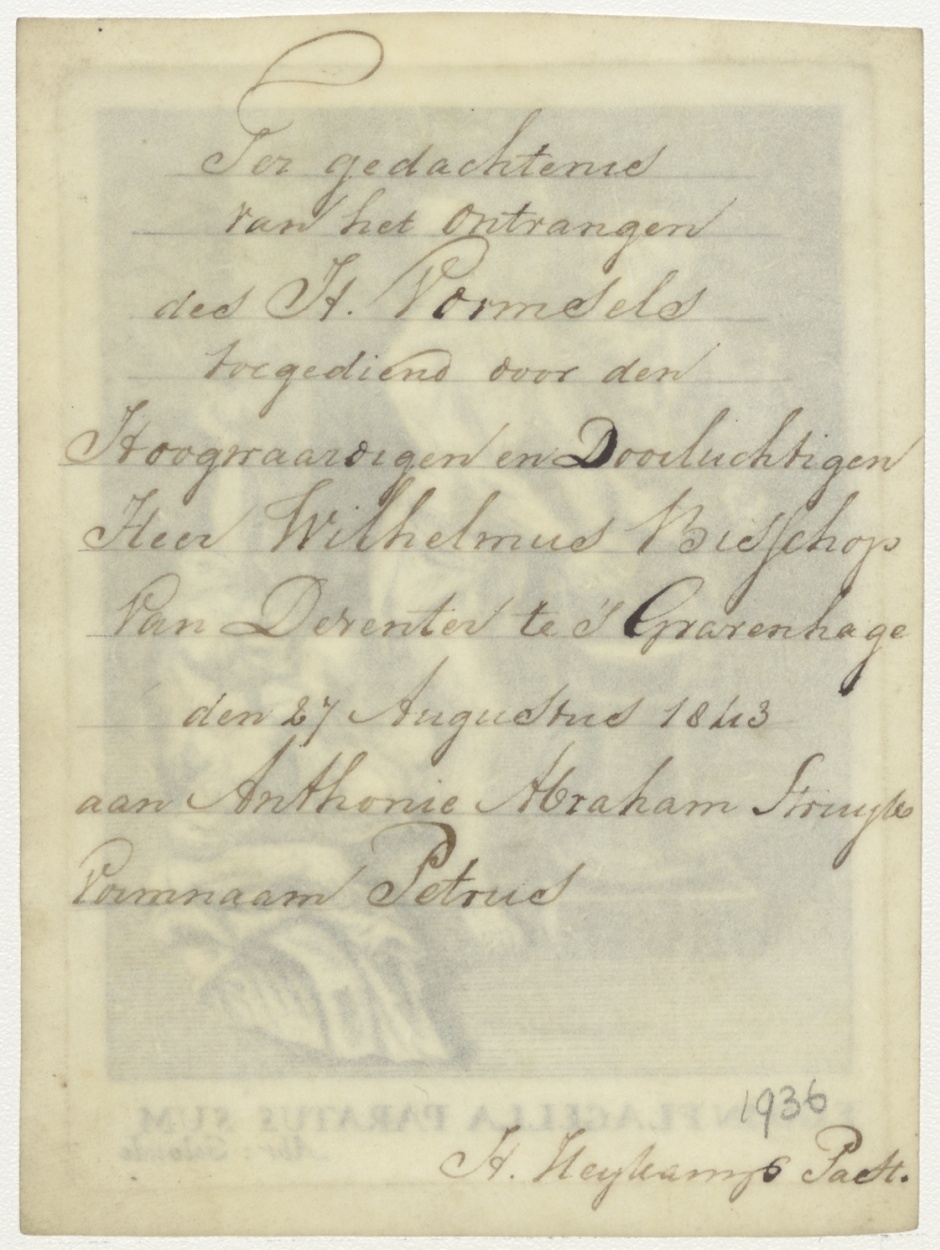 Ter gedachtenis
van het ontvangen
des H. Vormsels
toegediend door den
Hoogwaardigen en Doorluchtigen
Heer Wilhelmus Bisschop
Van Deventer te 's Gravenhage
den 27 Augustus 1843
aan Anthonie Abraham Struyk
Vormnaam Petrus
1936
EGO IN FLAGELLA PARATUS SUM
H. Heykamp Past.